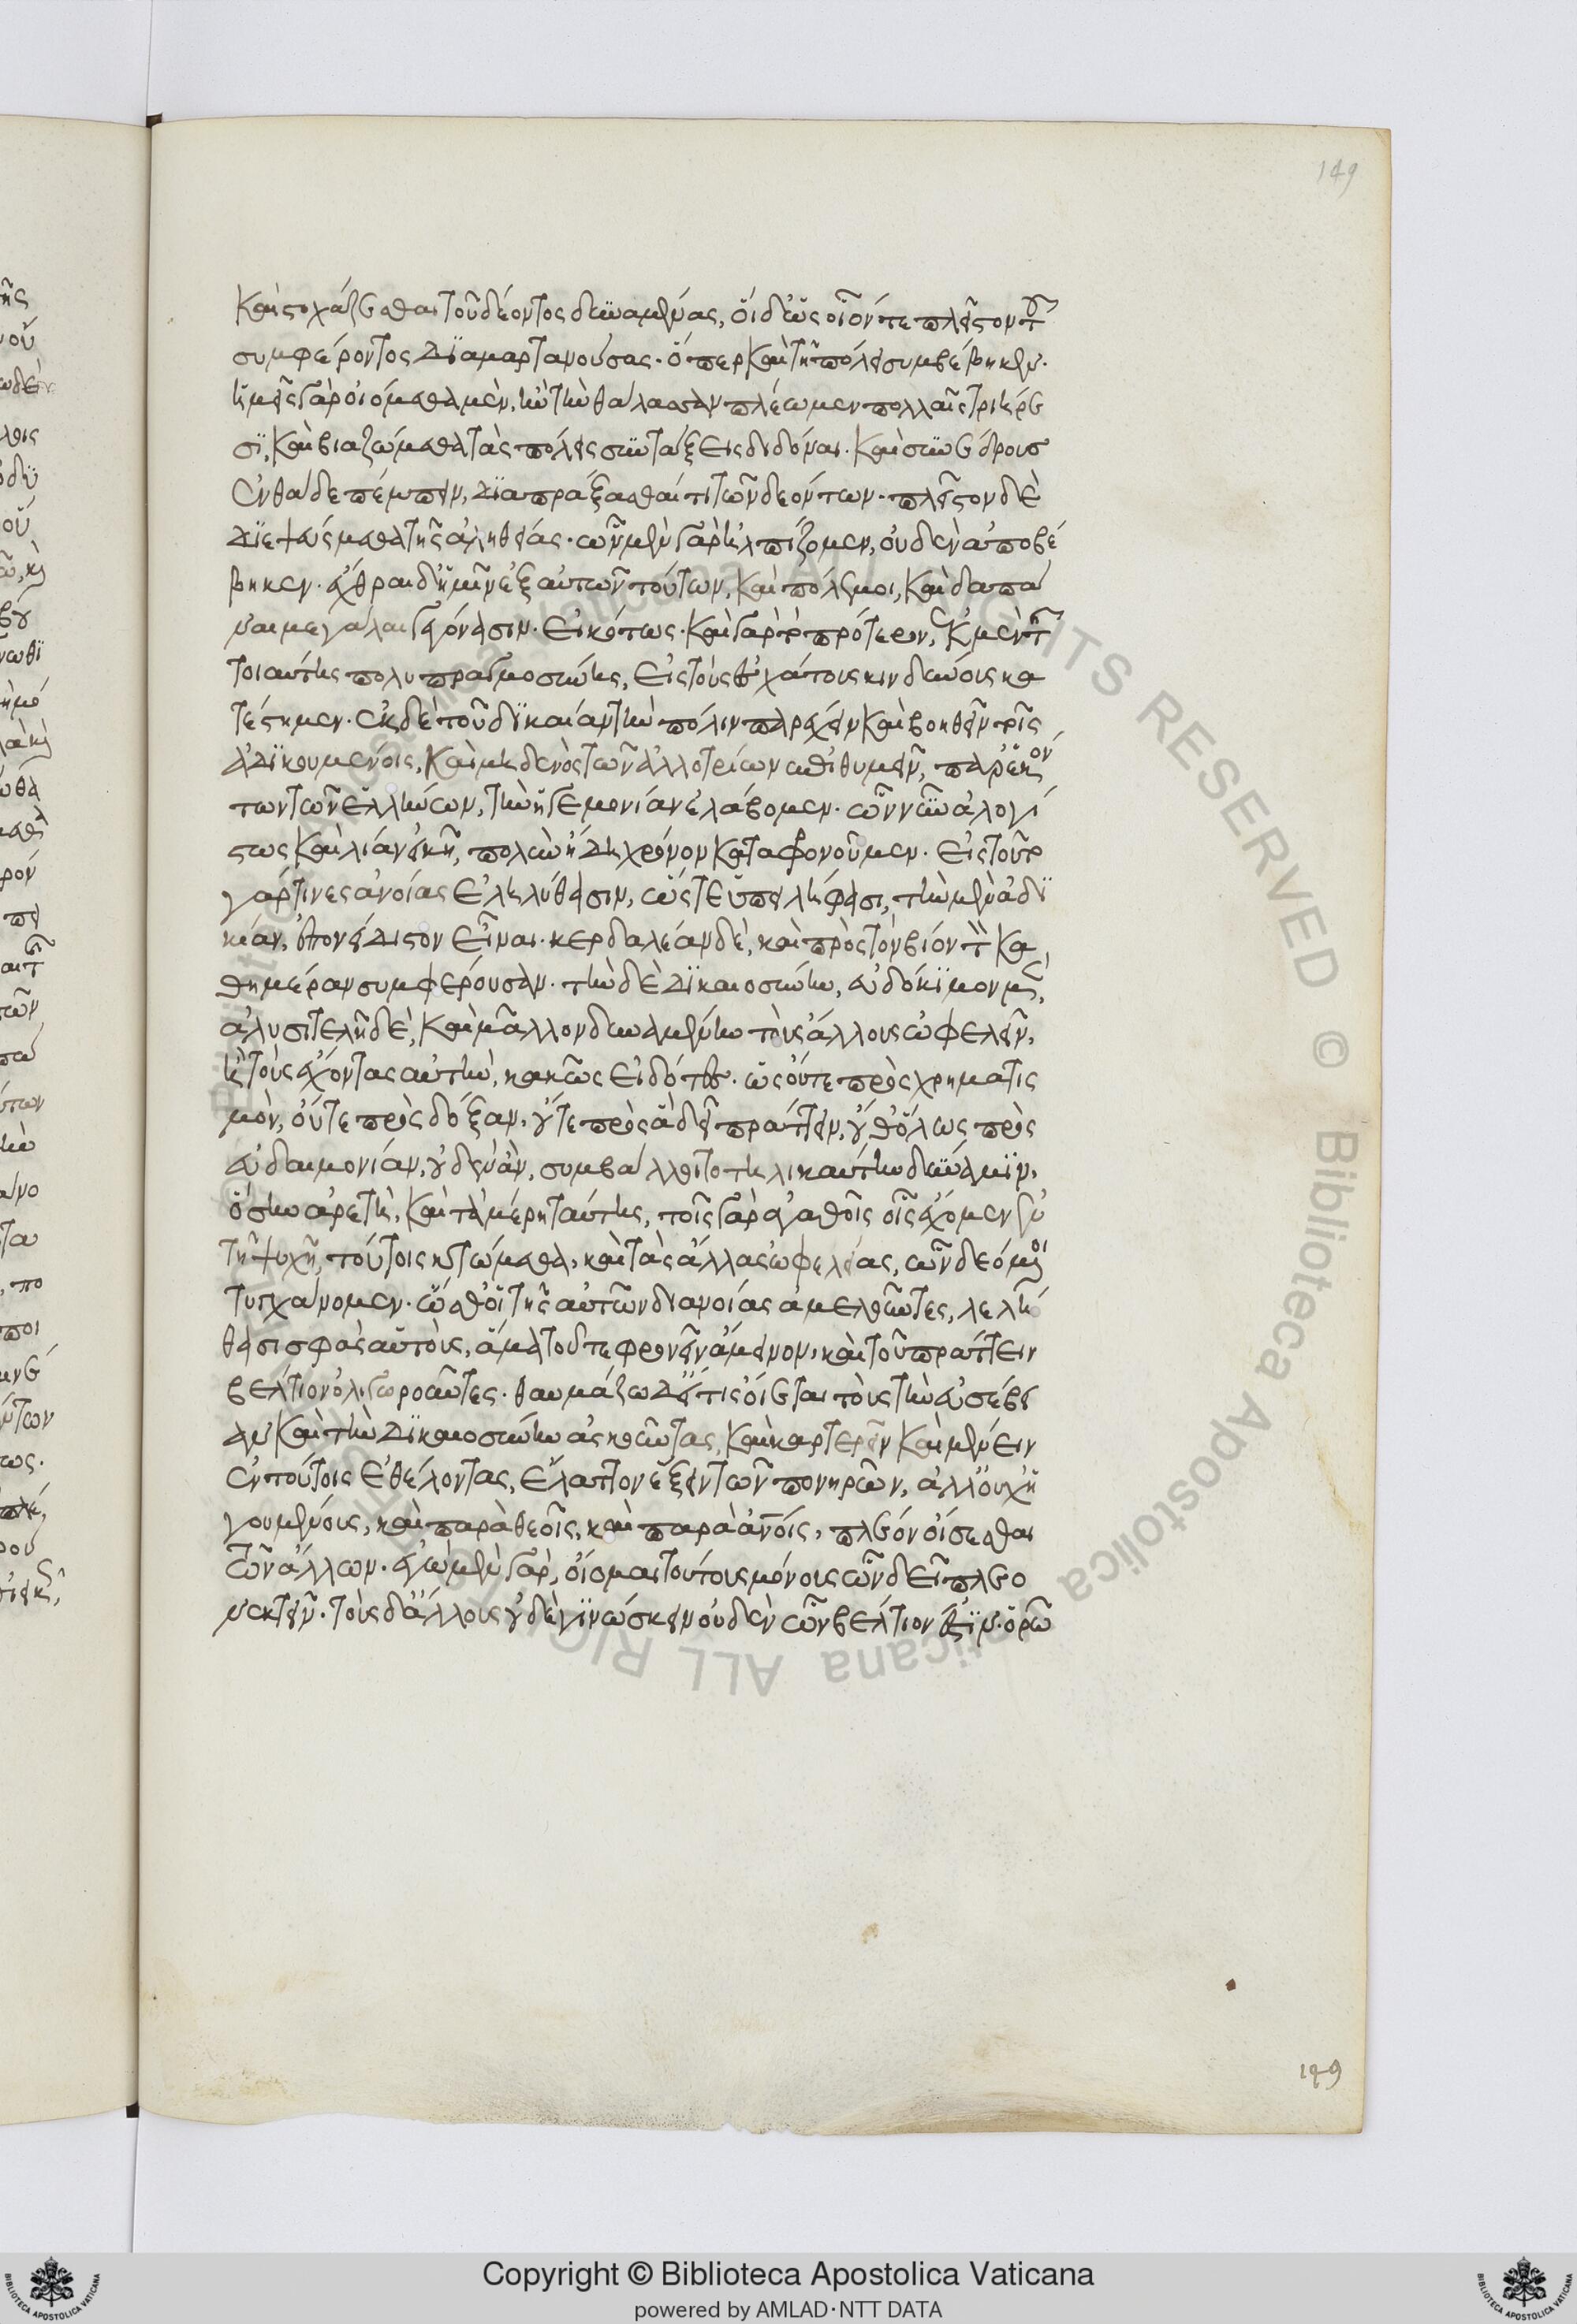 149
καὶ στοχάζεσθαι τοῦ δέοντος δυναμένας, οἱ δ' ὡς οἷόν τε πλεῖστον τοῦ
συμφέροντος διαμαρτανούσας. ὅπερ καὶ τῇ πόλει συμβέβηκεν.
ἡμεῖς γὰρ οἰόμεθα μὲν, ἢν τὴν θάλασσαν πλέωμεν πολλαῖς τριήρε
σι, καὶ βιαζώμεθα τὰς πόλεις συντάξεις διδόναι. καὶ συνέδρους
ἐνθάδε πέμπειν, διαπράξασθαί τι τῶν δεόντων. πλεῖστον δὲ
διεψεύσμεθα τῆς ἀληθείας. ὧν μὲν γὰρ ἠλπίζομεν, οὐδὲν ἀποβέ
βηκεν. ἔχθραι δ' ἡμῖν ἐξ αὐτῶν τούτων, καὶ πόλεμοι, καὶ δαπά
ναι μεγάλαι γεγόνασιν. εἰκότως. καὶ γὰρ τὸ πρότερον, ἐκ μὲν τῆς
τοιαύτης πολυπραγμοσύνης, εἰς τοὺς ἐσχάτους κινδύνους κα
τέστημεν. ἐκ δὲ τοῦ δικαίαν τὴν πόλιν παρέχειν καὶ βοηθεῖν τοῖς
ἀδικουμένοις, καὶ μηδενὸς τῶν ἀλλοτρίων ἐπιθυμεῖν, παρ' ἑκόν
των τῶν ἑλλήνων, τὴν ἡγεμονίαν ἐλάβομεν. ὧν νῦν ἀλογί
στως καὶ λίαν εἰκῆ, πολὺν ἤδη χρόνον καταφρονοῦμεν. εἰς τοῦτο
γάρ τινες ἀνοίας ἐληλύθασιν, ὥσθ' ὑπειλήφασι, τὴν μὲν ἀδι
κίαν, ἐπονείδιστον εἶναι. κερδαλέαν δὲ, καὶ πρὸς τὸν βίον τὸν κα
θημέραν συμφέρουσαν. τὴν δὲ δικαιοσύνην, εὐδόκιμον μὲν,
ἀλυσιτελῆ δὲ, καὶ μᾶλλον δυναμένην τοὺς ἄλλους ὠφελεῖν,
ἢ τοὺς ἔχοντας αὐτὴν, κακῶς εἰδότες. ὡς οὔτε πρὸς χρηματισ
μὸν, οὔτε πρὸς δόξαν, οὔτε πρὸς ἃ δεῖ πράττειν, οὔθ' ὅλως πρὸς
εὐδαιμονίαν, οὐδὲν ἂν, συμβάλλοιτο τηλικαύτην δύναμιν,
ὅσην ἀρετὴ, καὶ τὰ μέρη ταύτης, τοῖς γὰρ ἀγαθοῖς οἷς ἔχομεν ἐν
τῇ ψυχῇ, τούτοις κτώμεθα, καὶ τὰς ἄλλας ὠφελείας, ὧν δεόμενοι
τυγχάνομεν. ὥσθ' οἱ τῆς αὑτῶν διανοίας ἀμελοῦντες, λελή
θασι σφᾶς αὐτοὺς, ἅμα τοῦ τε φρονεῖν ἄμεινον, καὶ τοῦ πράττειν
βέλτιον ὀλιγωροῦντες. θαυμάζω δ' εἴ τις οἴεται τοὺς τὴν εὐσέβει
αν καὶ τὴν δικαιοσύνην ἀσκοῦντας, καὶ καρτερεῖν καὶ μένειν
ἐν τούτοις ἐθέλοντας, ἔλαττον ἕξειν τῶν πονηρῶν, ἀλλ' οὐχ ἡ
γουμένους, καὶ παρὰ θεοῖς, καὶ παρὰ ἀνοῖς, πλέον οἴσεσθαι
τῶν ἄλλων. ἐγὼ μὲν γὰρ, οἶμαι τούτους μόνους ὧν δεῖ πλεο
νεκτεῖν. τοὺς δ' ἄλλους οὐδὲ γινώσκειν οὐδὲν ὧν βέλτιον ἐστὶν. ὁρῶ
149
Copyright © Biblioteca Apostolica Vaticana
powered by AMLAD·NTT DATA